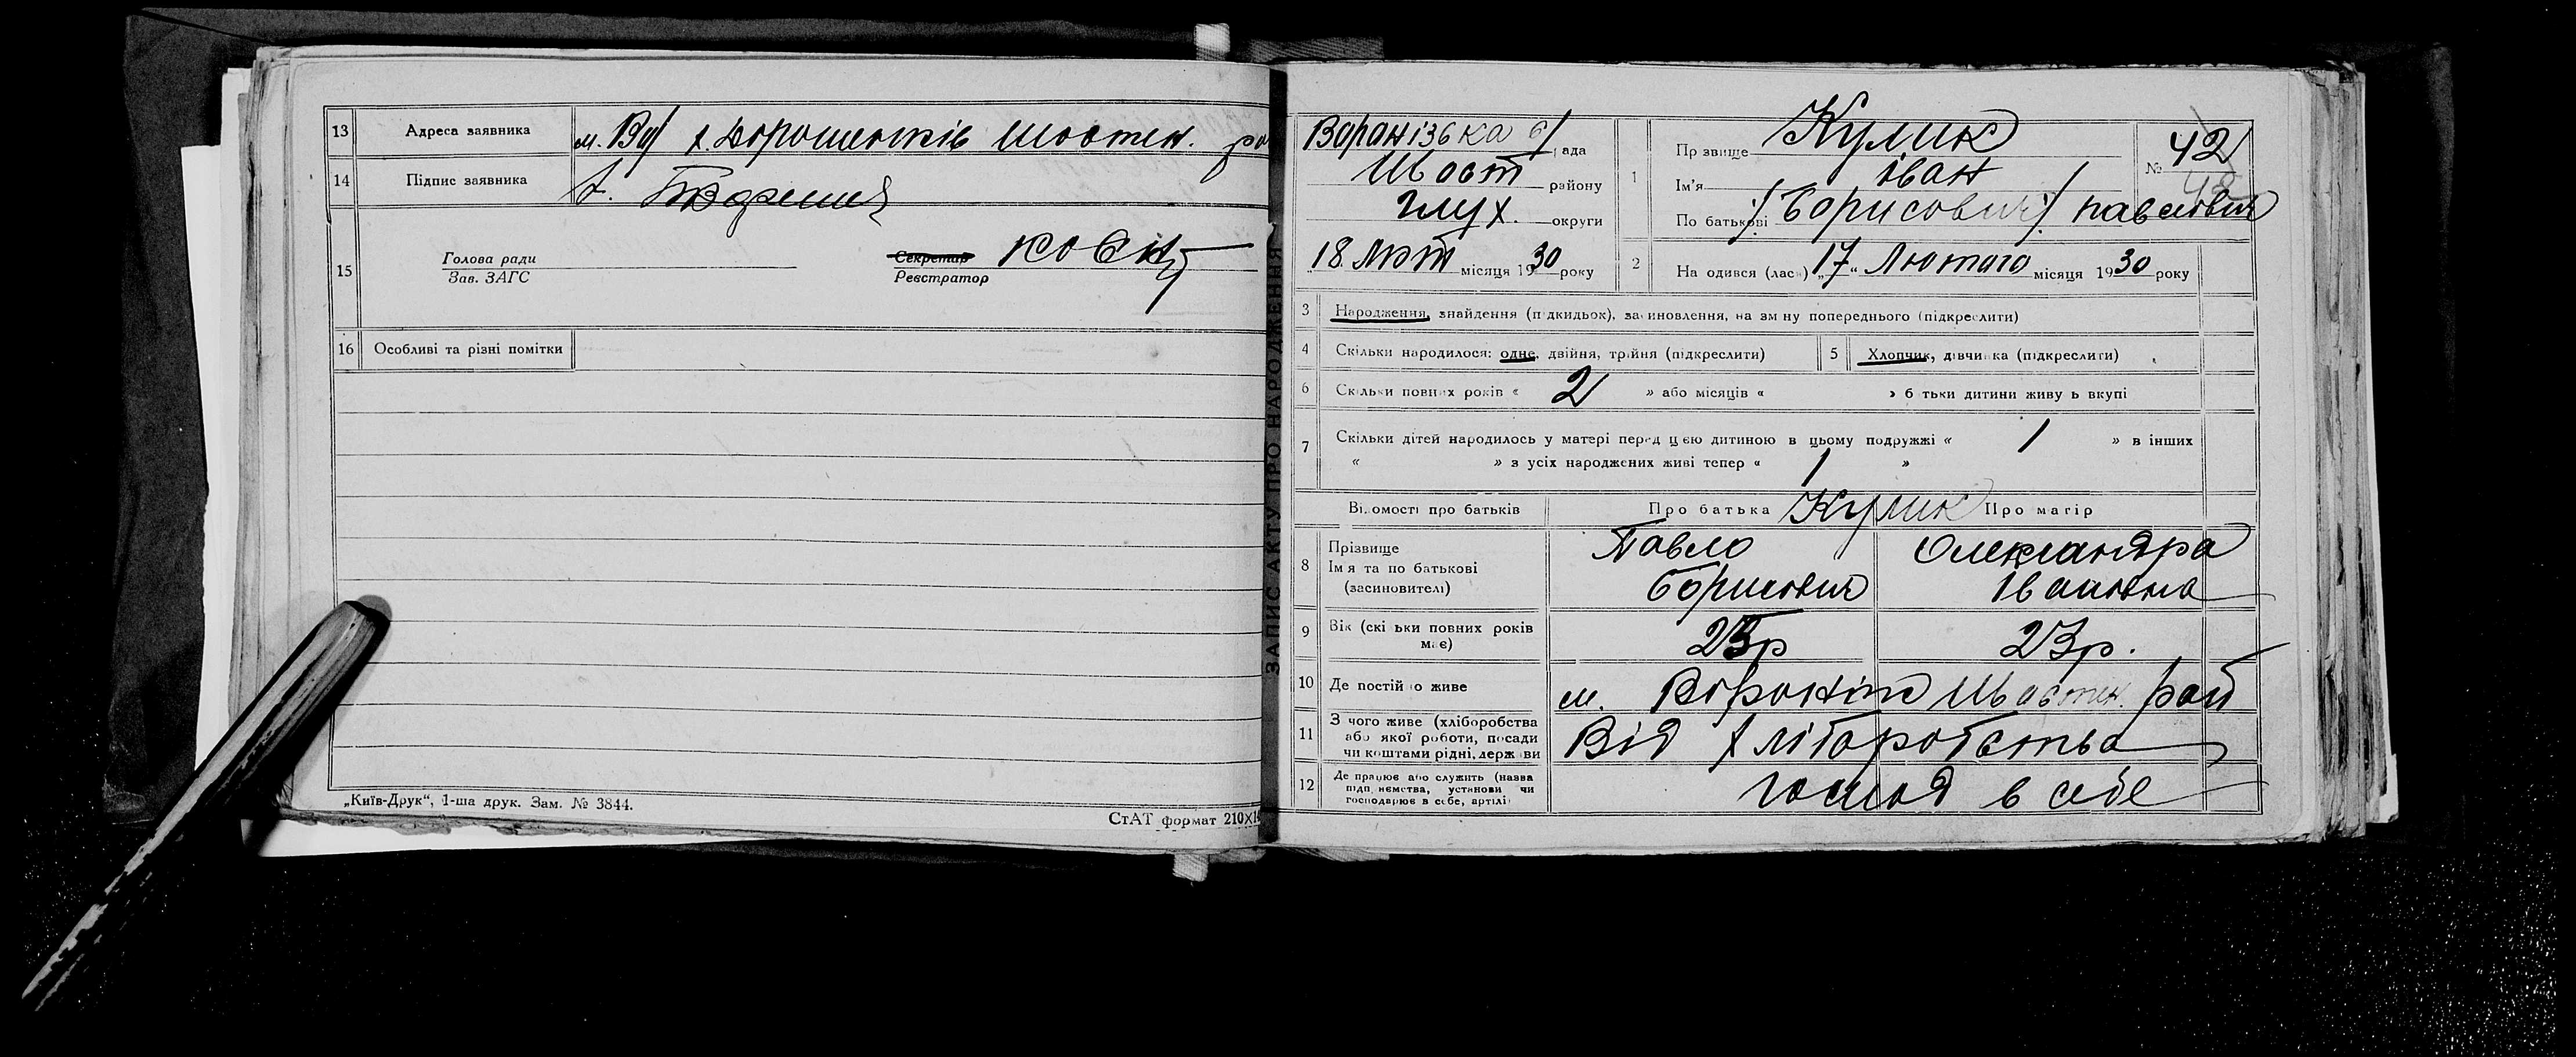 13 Адреса заявника м. Вор х. Дорошенків Шостен. ра
14 Підпис заявника
15 Голова ради
Зав. ЗАГС
Секретар
Реєстратор
16 Особливі та різні помітки
„Київ-Друк“, 1-ша друк. Зам. № 3844.
СтАТ формат 210×14
ЗАПИС АКТУ ПРО НАРОДЖЕННЯ
Воронізька с/ рада
Шост району
Глух. округи
„18 Лют місяця 1930 року
1 Прзвище Кулик
Ім'я Іван
По батькові /Борисович/ павлович
№ 42
2 На одився (лась) „17“ Лютого місяця 1930 року
3 Народження, знайдення (підкидьок), засиновлення, на зміну попереднього (підкреслити)
4 Скільки народилося: одне, двійня, трійня (підкреслити)
5 Хлопчик, дівчинка (підкреслити)
6 Скільки повних років « 2 » або місяців « » б тьки дитини живу ь вкупі
7 Скільки дітей народилось у матері перед цією дитиною в цьому подружжі « 1 » в інших
« » з усіх народжених живі тепер « 1 »
Відомості про батьків Про батька Кулик Про матір
8 Прізвище
Ім я та по батькові
(засиновителі)
Павло
Борисович
Олександра
Івановна
9 Вік (скі ьки повних років має) 23р 23р.
10 Де постій о живе м. Вороніж Шостен. рай
11 З чого живе (хліборобства
або якої роботи, посади
чи коштами рідні, держави
Від хліборобства
12 Де працює або служить (назва
підп ємства, установи чи
господарює в себе, артілі)
господ в себе